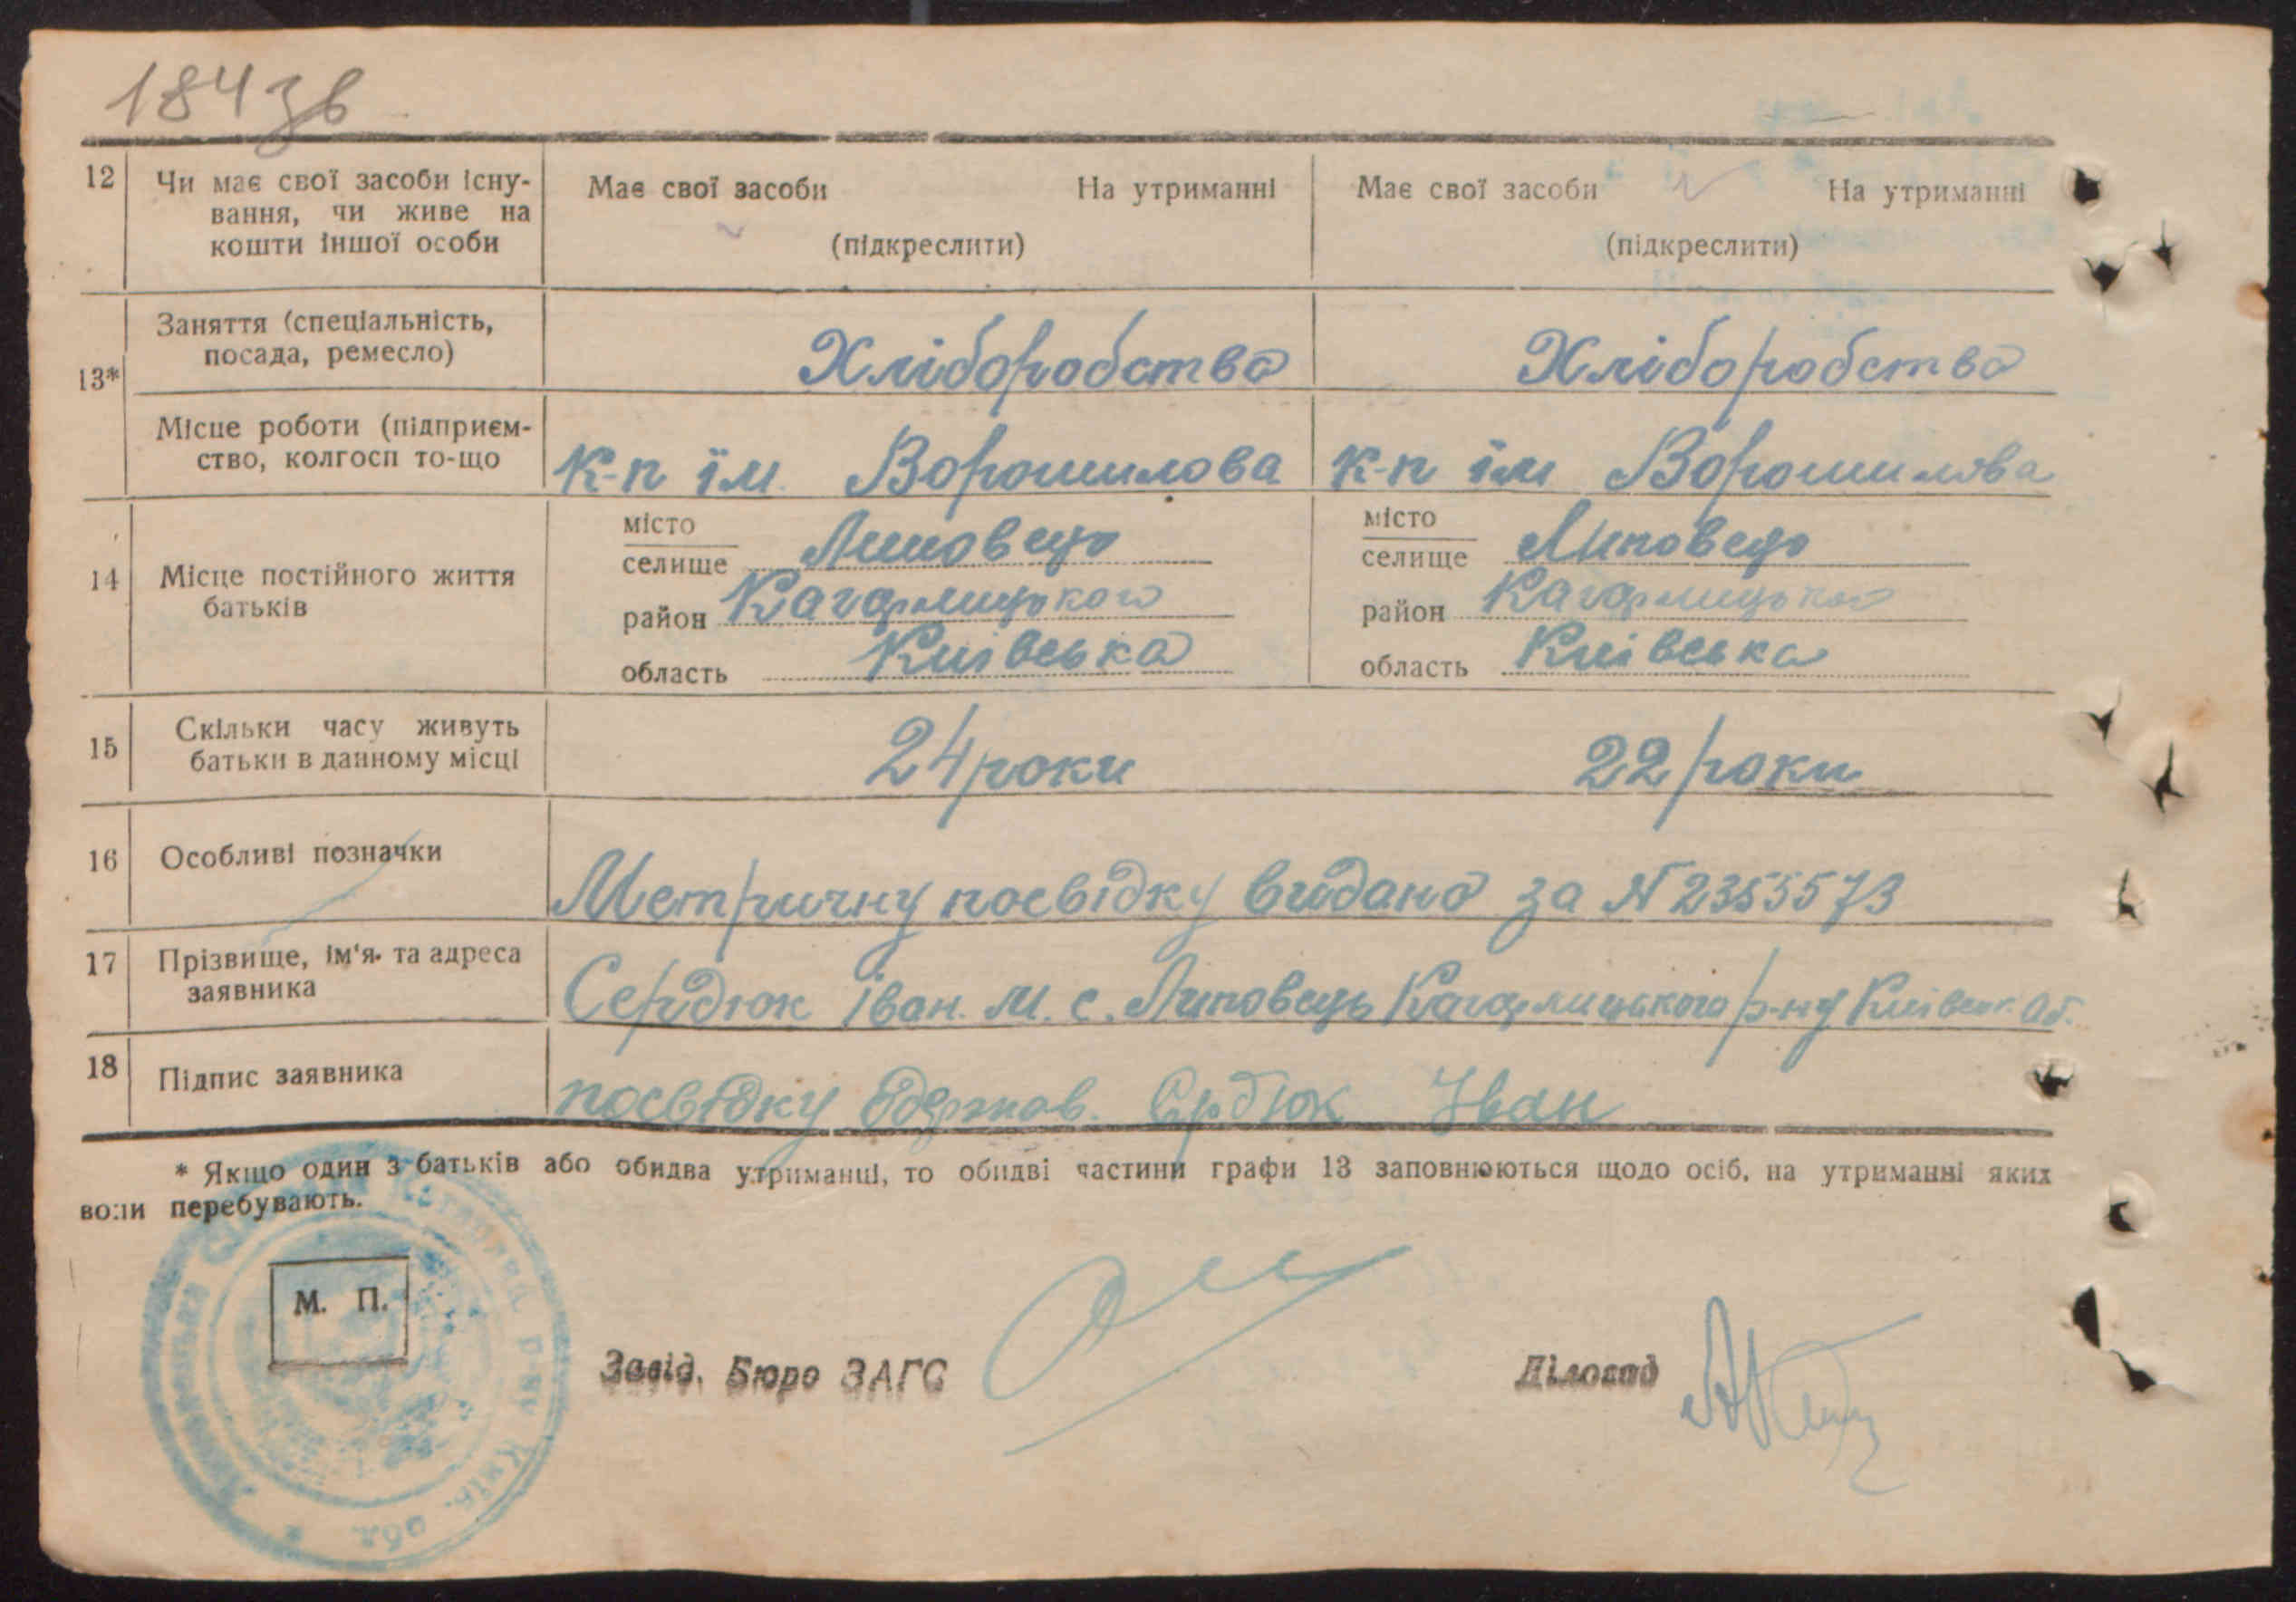 184 зв
12 Чи має свої засоби існу- Має свої засоби На утриманні Має свої засоби На утриманні
вання, чи живе на
кошти іншої особи (підкреслити) (підкреслити)
13*
Заняття (спеціальність,
посада, ремесло) Хліборобство Хліборобство
Місце роботи (підприєм-
ство, колгосп то-що К-п ім. Ворошилова К-п ім Ворошилова
14 Місце постійного життя
батьків
місто
селище Липовець
район Кагарлицького
область Київська
місто
селище Липовець
район Кагарлицького
область Київська
15 Скільки часу живуть
батьки в данному місці 24 роки 22 роки
16 Особливі позначки Метричну посвідку видано за № 2355573
17 Прізвище, ім'я та адреса
заявника Сердюк Іван. М. с. Липовець Кагарлицького р-ну Київськ. Об.
18 Підпис заявника посвідку одержав. Срдюк Іван
* Якщо один з батьків або обидва утриманці, то обидві частини графи 13 заповнюються щодо осіб, на утриманні яких
вони перебувають.
М. П.
р-ну Київ. обл.
Завід. Бюро ЗАГС Діловод